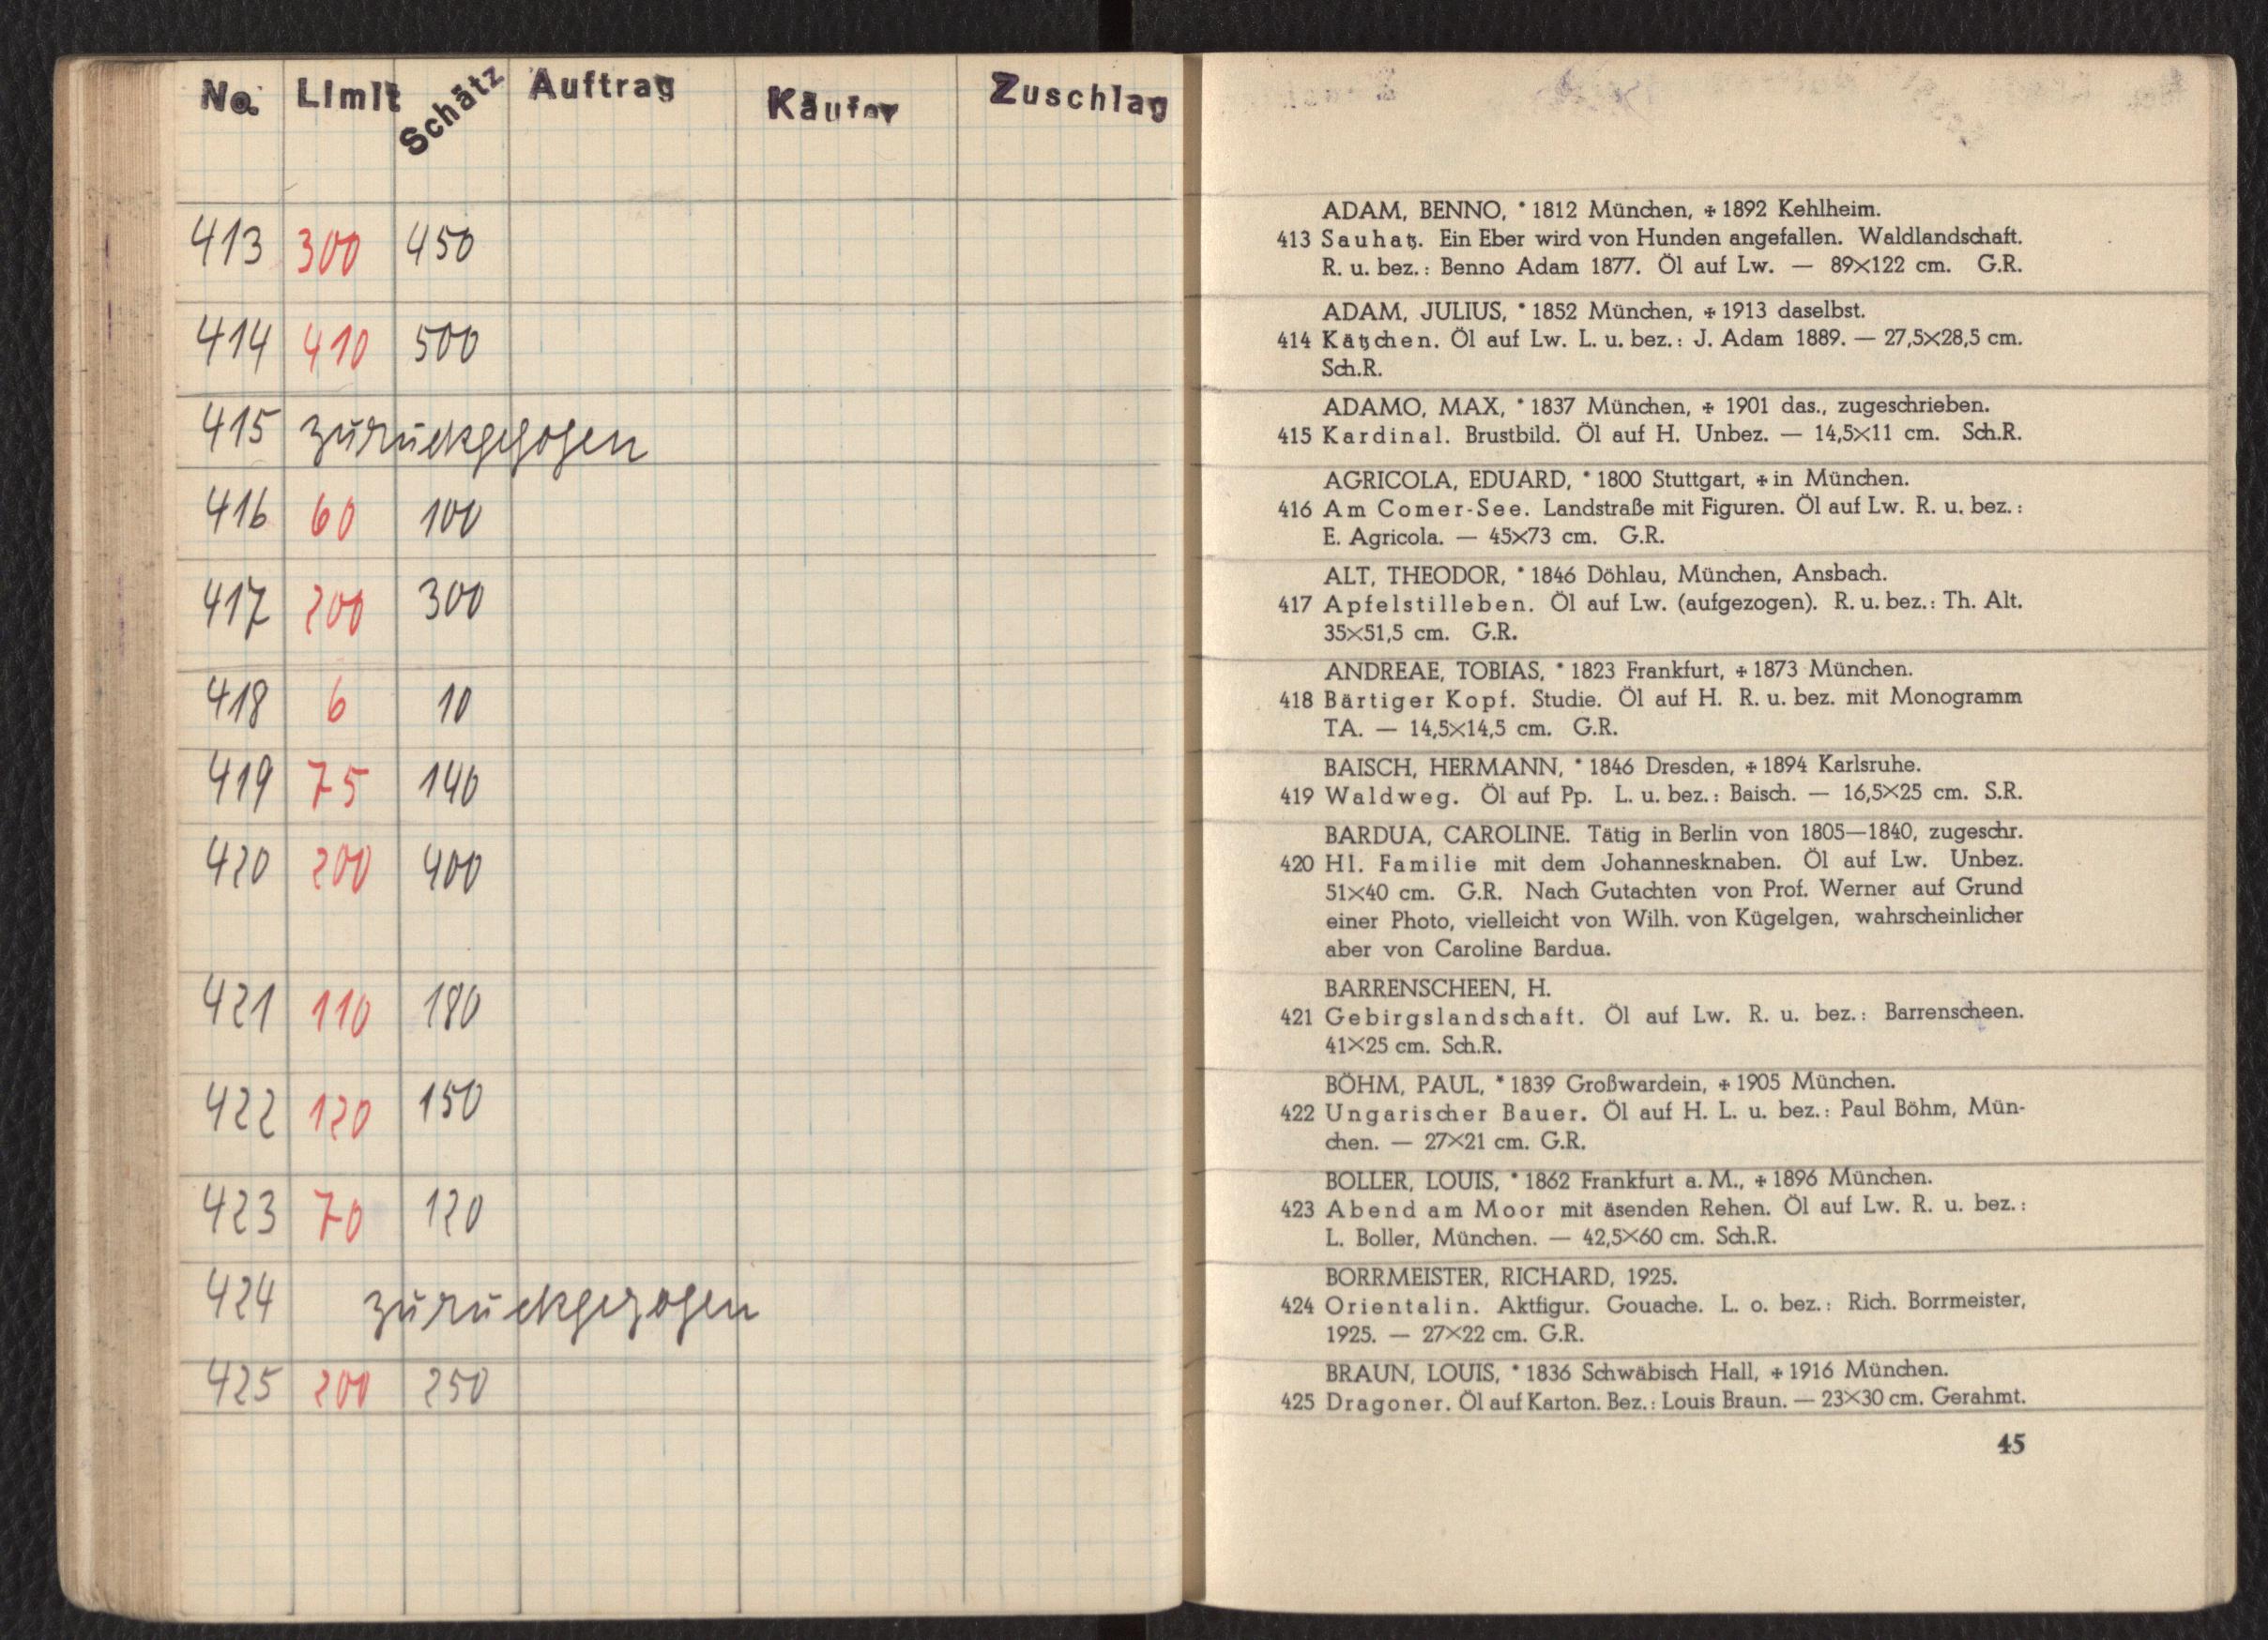 No. Limit Schätz Auftrag Käufer Zuschlag
413 300 450
414 410 500
415 zurückgezogen
416 60 100
417 200 300
418 6 10
419 75 140
420 200 400
421 110 180
422 120 150
423 70 120
424 zurückgezogen
425 200 250
ADAM, BENNO, * 1812 München, ✠ 1892 Kehlheim.
413 Sauhatz. Ein Eber wird von Hunden angefallen. Waldlandschaft.
R. u. bez.: Benno Adam 1877. Öl auf Lw. — 89×122 cm. G.R.
ADAM, JULIUS, * 1852 München, ✠ 1913 daselbst.
414 Kätzchen. Öl auf Lw. L. u. bez.: J. Adam 1889. — 27,5×28,5 cm.
Sch.R.
ADAMO, MAX, * 1837 München, ✠ 1901 das., zugeschrieben.
415 Kardinal. Brustbild. Öl auf H. Unbez. — 14,5×11 cm. Sch.R.
AGRICOLA, EDUARD, * 1800 Stuttgart, ✠ in München.
416 Am Comer-See. Landstraße mit Figuren. Öl auf Lw. R. u. bez.:
E. Agricola. — 45×73 cm. G.R.
ALT, THEODOR, * 1846 Döhlau, München, Ansbach.
417 Apfelstilleben. Öl auf Lw. (aufgezogen). R. u. bez.: Th. Alt.
35×51,5 cm. G.R.
ANDREAE, TOBIAS, * 1823 Frankfurt, ✠ 1873 München.
418 Bärtiger Kopf. Studie. Öl auf H. R. u. bez. mit Monogramm
TA. — 14,5×14,5 cm. G.R.
BAISCH, HERMANN, * 1846 Dresden, ✠ 1894 Karlsruhe.
419 Waldweg. Öl auf Pp. L. u. bez.: Baisch. — 16,5×25 cm. S.R.
BARDUA, CAROLINE. Tätig in Berlin von 1805—1840, zugeschr.
420 Hl. Familie mit dem Johannesknaben. Öl auf Lw. Unbez.
51×40 cm. G.R. Nach Gutachten von Prof. Werner auf Grund
einer Photo, vielleicht von Wilh. von Kügelgen, wahrscheinlicher
aber von Caroline Bardua.
BARRENSCHEEN, H.
421 Gebirgslandschaft. Öl auf Lw. R. u. bez.: Barrenscheen.
41×25 cm. Sch.R.
BÖHM, PAUL, * 1839 Großwardein, ✠ 1905 München.
422 Ungarischer Bauer. Öl auf H. L. u. bez.: Paul Böhm, Mün-
chen. — 27×21 cm. G.R.
BOLLER, LOUIS, * 1862 Frankfurt a. M., ✠ 1896 München.
423 Abend am Moor mit äsenden Rehen. Öl auf Lw. R. u. bez.:
L. Boller, München. — 42,5×60 cm. Sch.R.
BORRMEISTER, RICHARD, 1925.
424 Orientalin. Aktfigur. Gouache. L. o. bez.: Rich. Borrmeister,
1925. — 27×22 cm. G.R.
BRAUN, LOUIS, * 1836 Schwäbisch Hall, ✠ 1916 München.
425 Dragoner. Öl auf Karton. Bez.: Louis Braun. — 23×30 cm. Gerahmt.
45